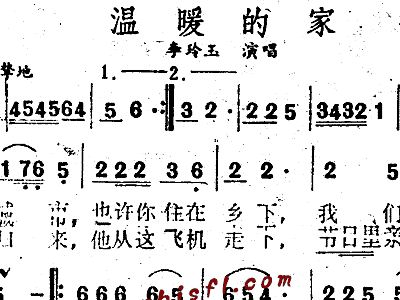 温暖的家
李玲玉 演唱
挚地 1. 2.
454564 | 5 6 · :| 3 2 · | 2 2 5 | 3432 1 |
1 76 5 | 2 2 2 3 6 | 2 2 · | 2 5
市，也许你住在乡下，我们
归来，他从这飞机走下，节日里亲
5 - |: 6 6 6 6 5 | 6 5 4 · | 2 2 5